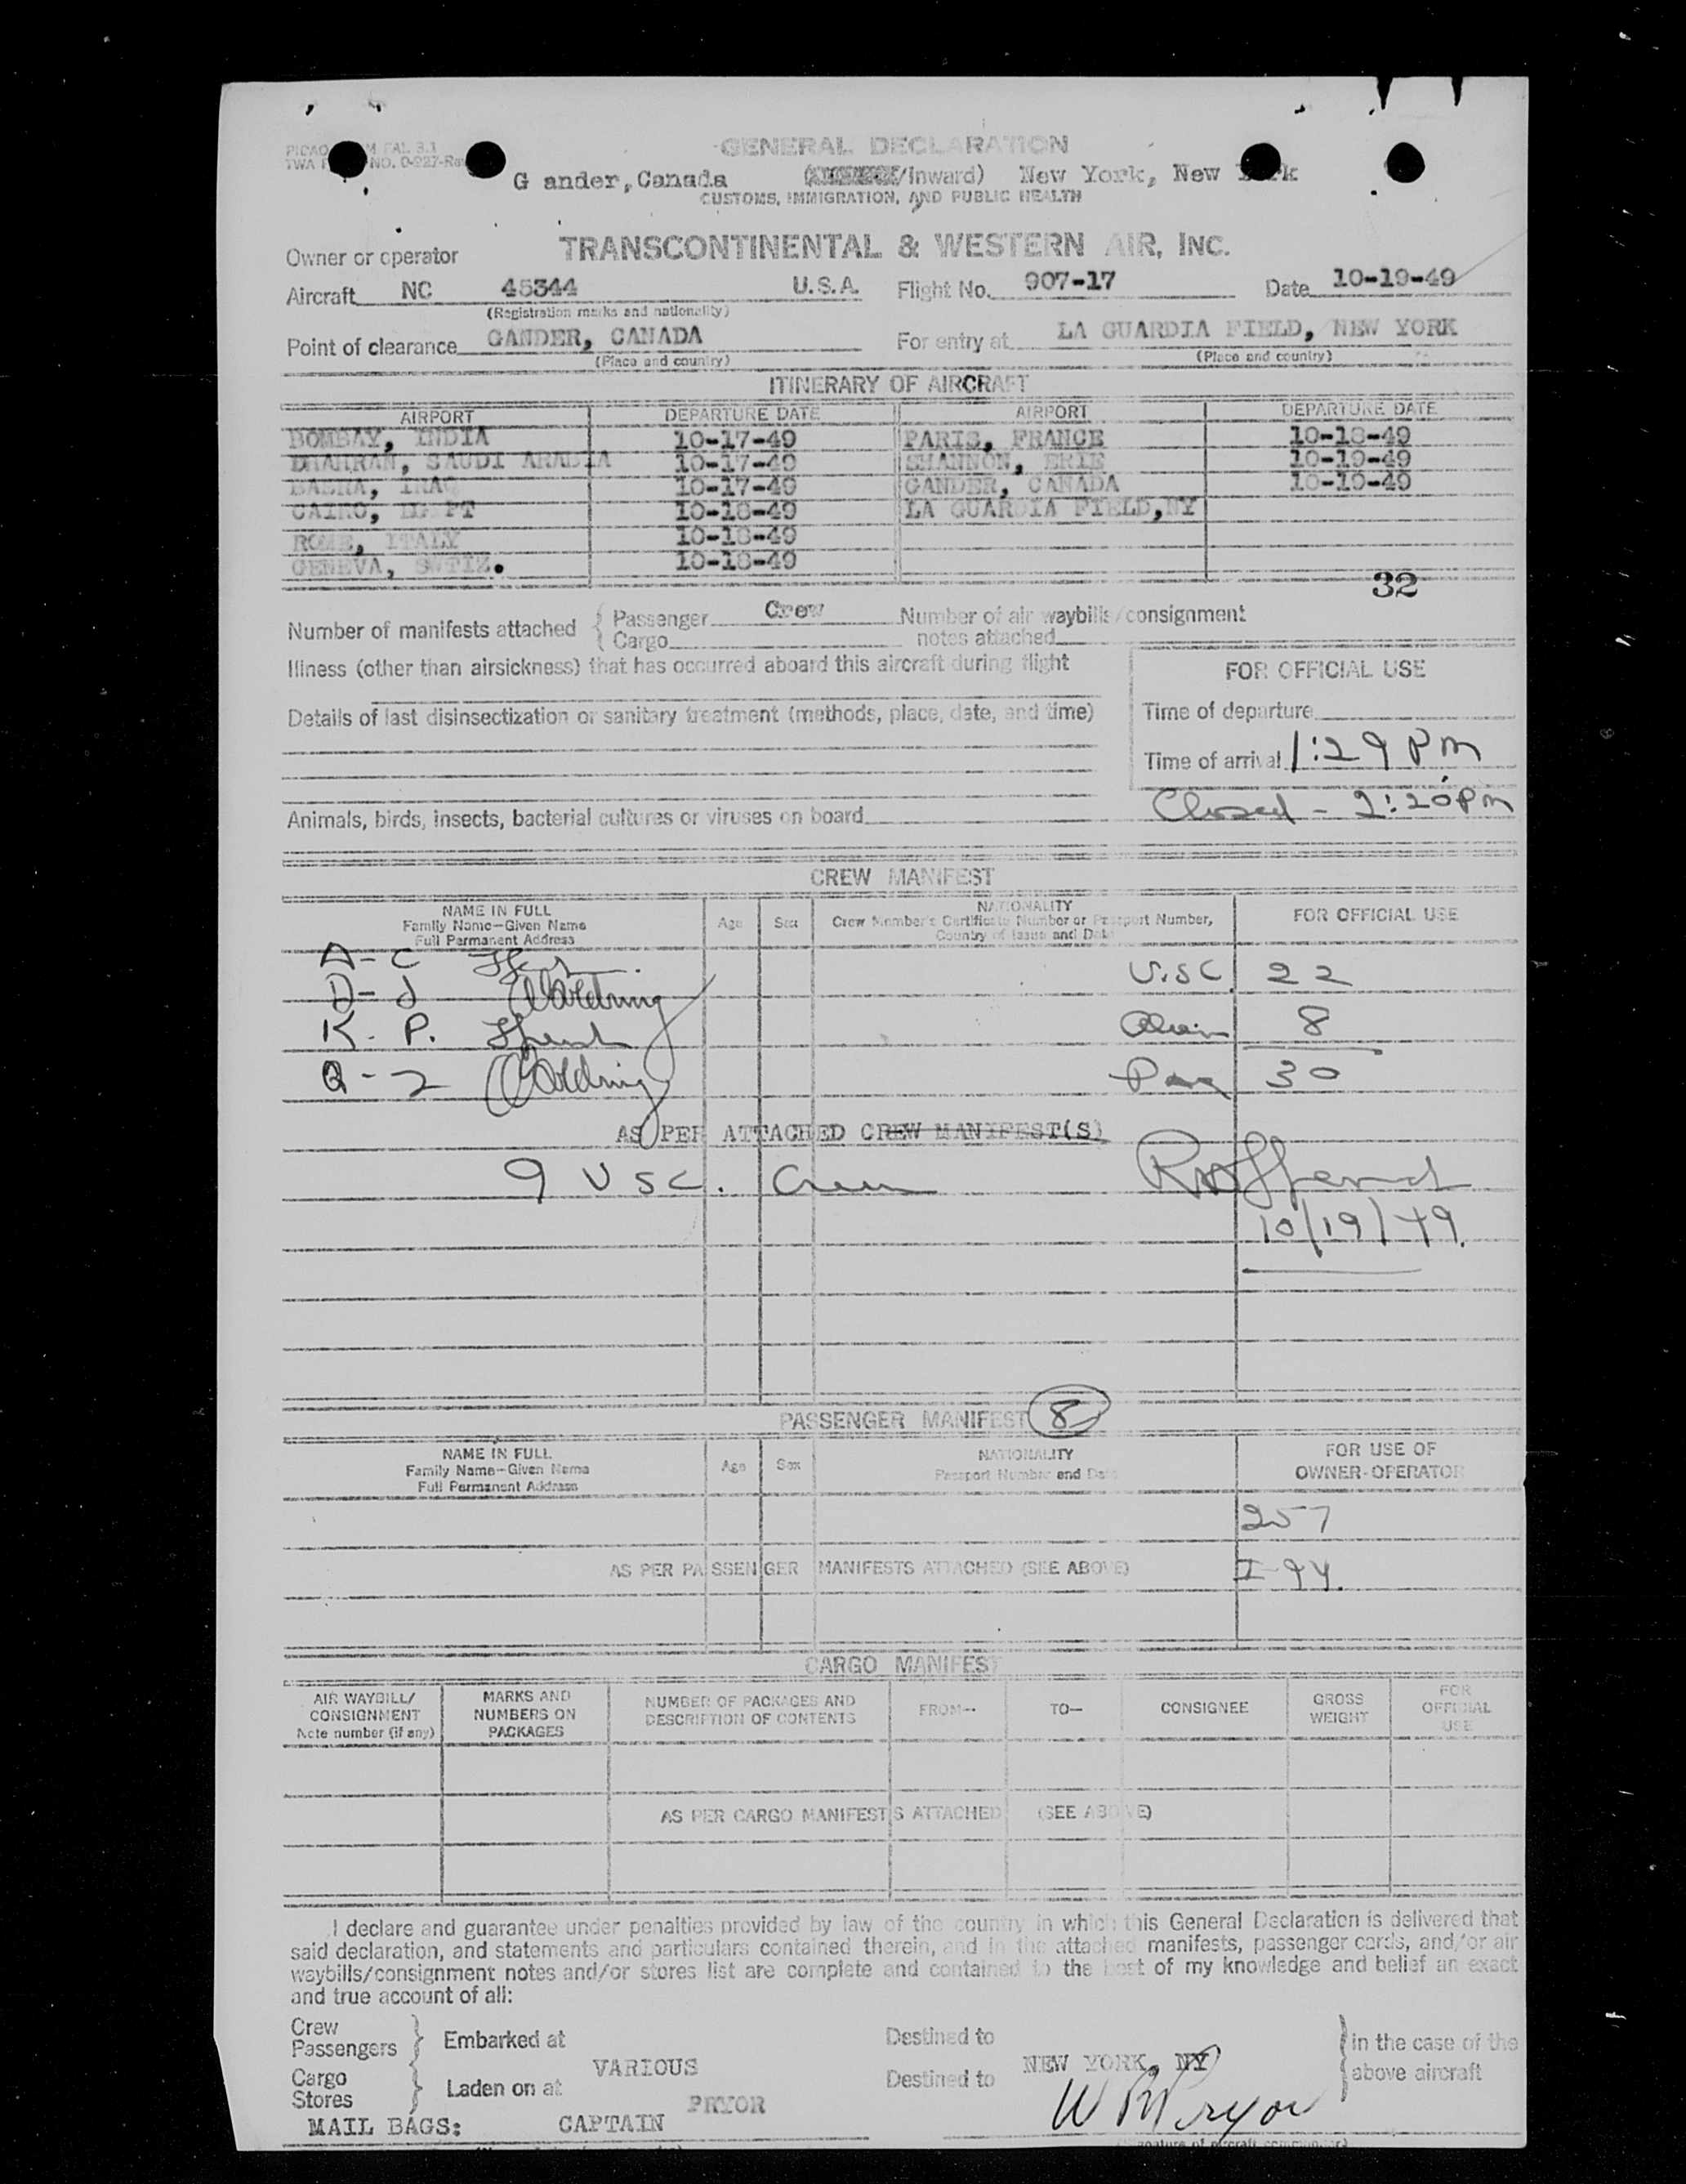 GENERAL DECLARATION
G ander, Canada /Inward) New York, New
CUSTOMS, IMMIGRATION, AND PUBLIC HEALTH
Owner or operator TRANSCONTINENTAL & WESTERN AIR, INC.
Aircraft NC 45344 U.S.A. Flight No. 907-17 Date 10-19-49
(Registration marks and nationality)
Point of clearance GANDER, CANADA For entry at LA GUARDIA FIELD, NEW YORK
(Place and country) (Place and country)
ITINERARY OF AIRCRAFT
AIRPORT DEPARTURE DATE AIRPORT DEPARTURE DATE
BOMBAY, INDIA 10-17-49 PARIS, FRANCE 10-18-49
DHAHRAN, SAUDI ARABIA 10-17-49 SHANNON, ERIE 10-19-49
BASRA, IRAQ 10-17-49 GANDER, CANADA 10-19-49
CAIRO, EGYPT 10-18-49 LA GUARDIA FIELD,NY
ROME, ITALY 10-18-49
GENEVA, SWTIZ. 10-18-49
32
Number of manifests attached { Passenger Crew Number of air waybills/consignment
{ Cargo notes attached
Illness (other than airsickness) that has occurred aboard this aircraft during flight
FOR OFFICIAL USE
Details of last disinsectization or sanitary treatment (methods, place, date, and time)
Time of departure
Time of arrival 1:29 PM
Closed - 2:20 PM
Animals, birds, insects, bacterial cultures or viruses on board
CREW MANIFEST
NAME IN FULL
Family Name—Given Name
Full Permanent Address
Age Sex
NATIONALITY
Crew Member's Certificate Number or Passport Number,
Country of Issue and Date
FOR OFFICIAL USE
A - C
U.S.C. 22
D - J
K - P.
8
Q - Z
30
AS PER ATTACHED CREW MANIFEST(S)
9 USC. Crew
10/19/49.
PASSENGER MANIFEST 8
NAME IN FULL
Family Name—Given Name
Full Permanent Address
Age Sex
NATIONALITY
Passport Number and Date
FOR USE OF
OWNER-OPERATOR
257
AS PER PASSENGER MANIFESTS ATTACHED (SEE ABOVE)
I-94.
CARGO MANIFEST
AIR WAYBILL/
CONSIGNMENT
Note number (if any)
MARKS AND
NUMBERS ON
PACKAGES
NUMBER OF PACKAGES AND
DESCRIPTION OF CONTENTS
FROM—
TO—
CONSIGNEE
GROSS
WEIGHT
FOR
OFFICIAL
USE
AS PER CARGO MANIFESTS ATTACHED (SEE ABOVE)
I declare and guarantee under penalties provided by law of the country in which this General Declaration is delivered that
said declaration, and statements and particulars contained therein, and in the attached manifests, passenger cards, and/or air
waybills/consignment notes and/or stores list are complete and contained to the best of my knowledge and belief an exact
and true account of all:
Crew
Passengers } Embarked at Destined to } in the case of the
VARIOUS NEW YORK, NY
Cargo
Stores } Laden on at Destined to above aircraft
MAIL BAGS: CAPTAIN PRYOR
W M Pryor